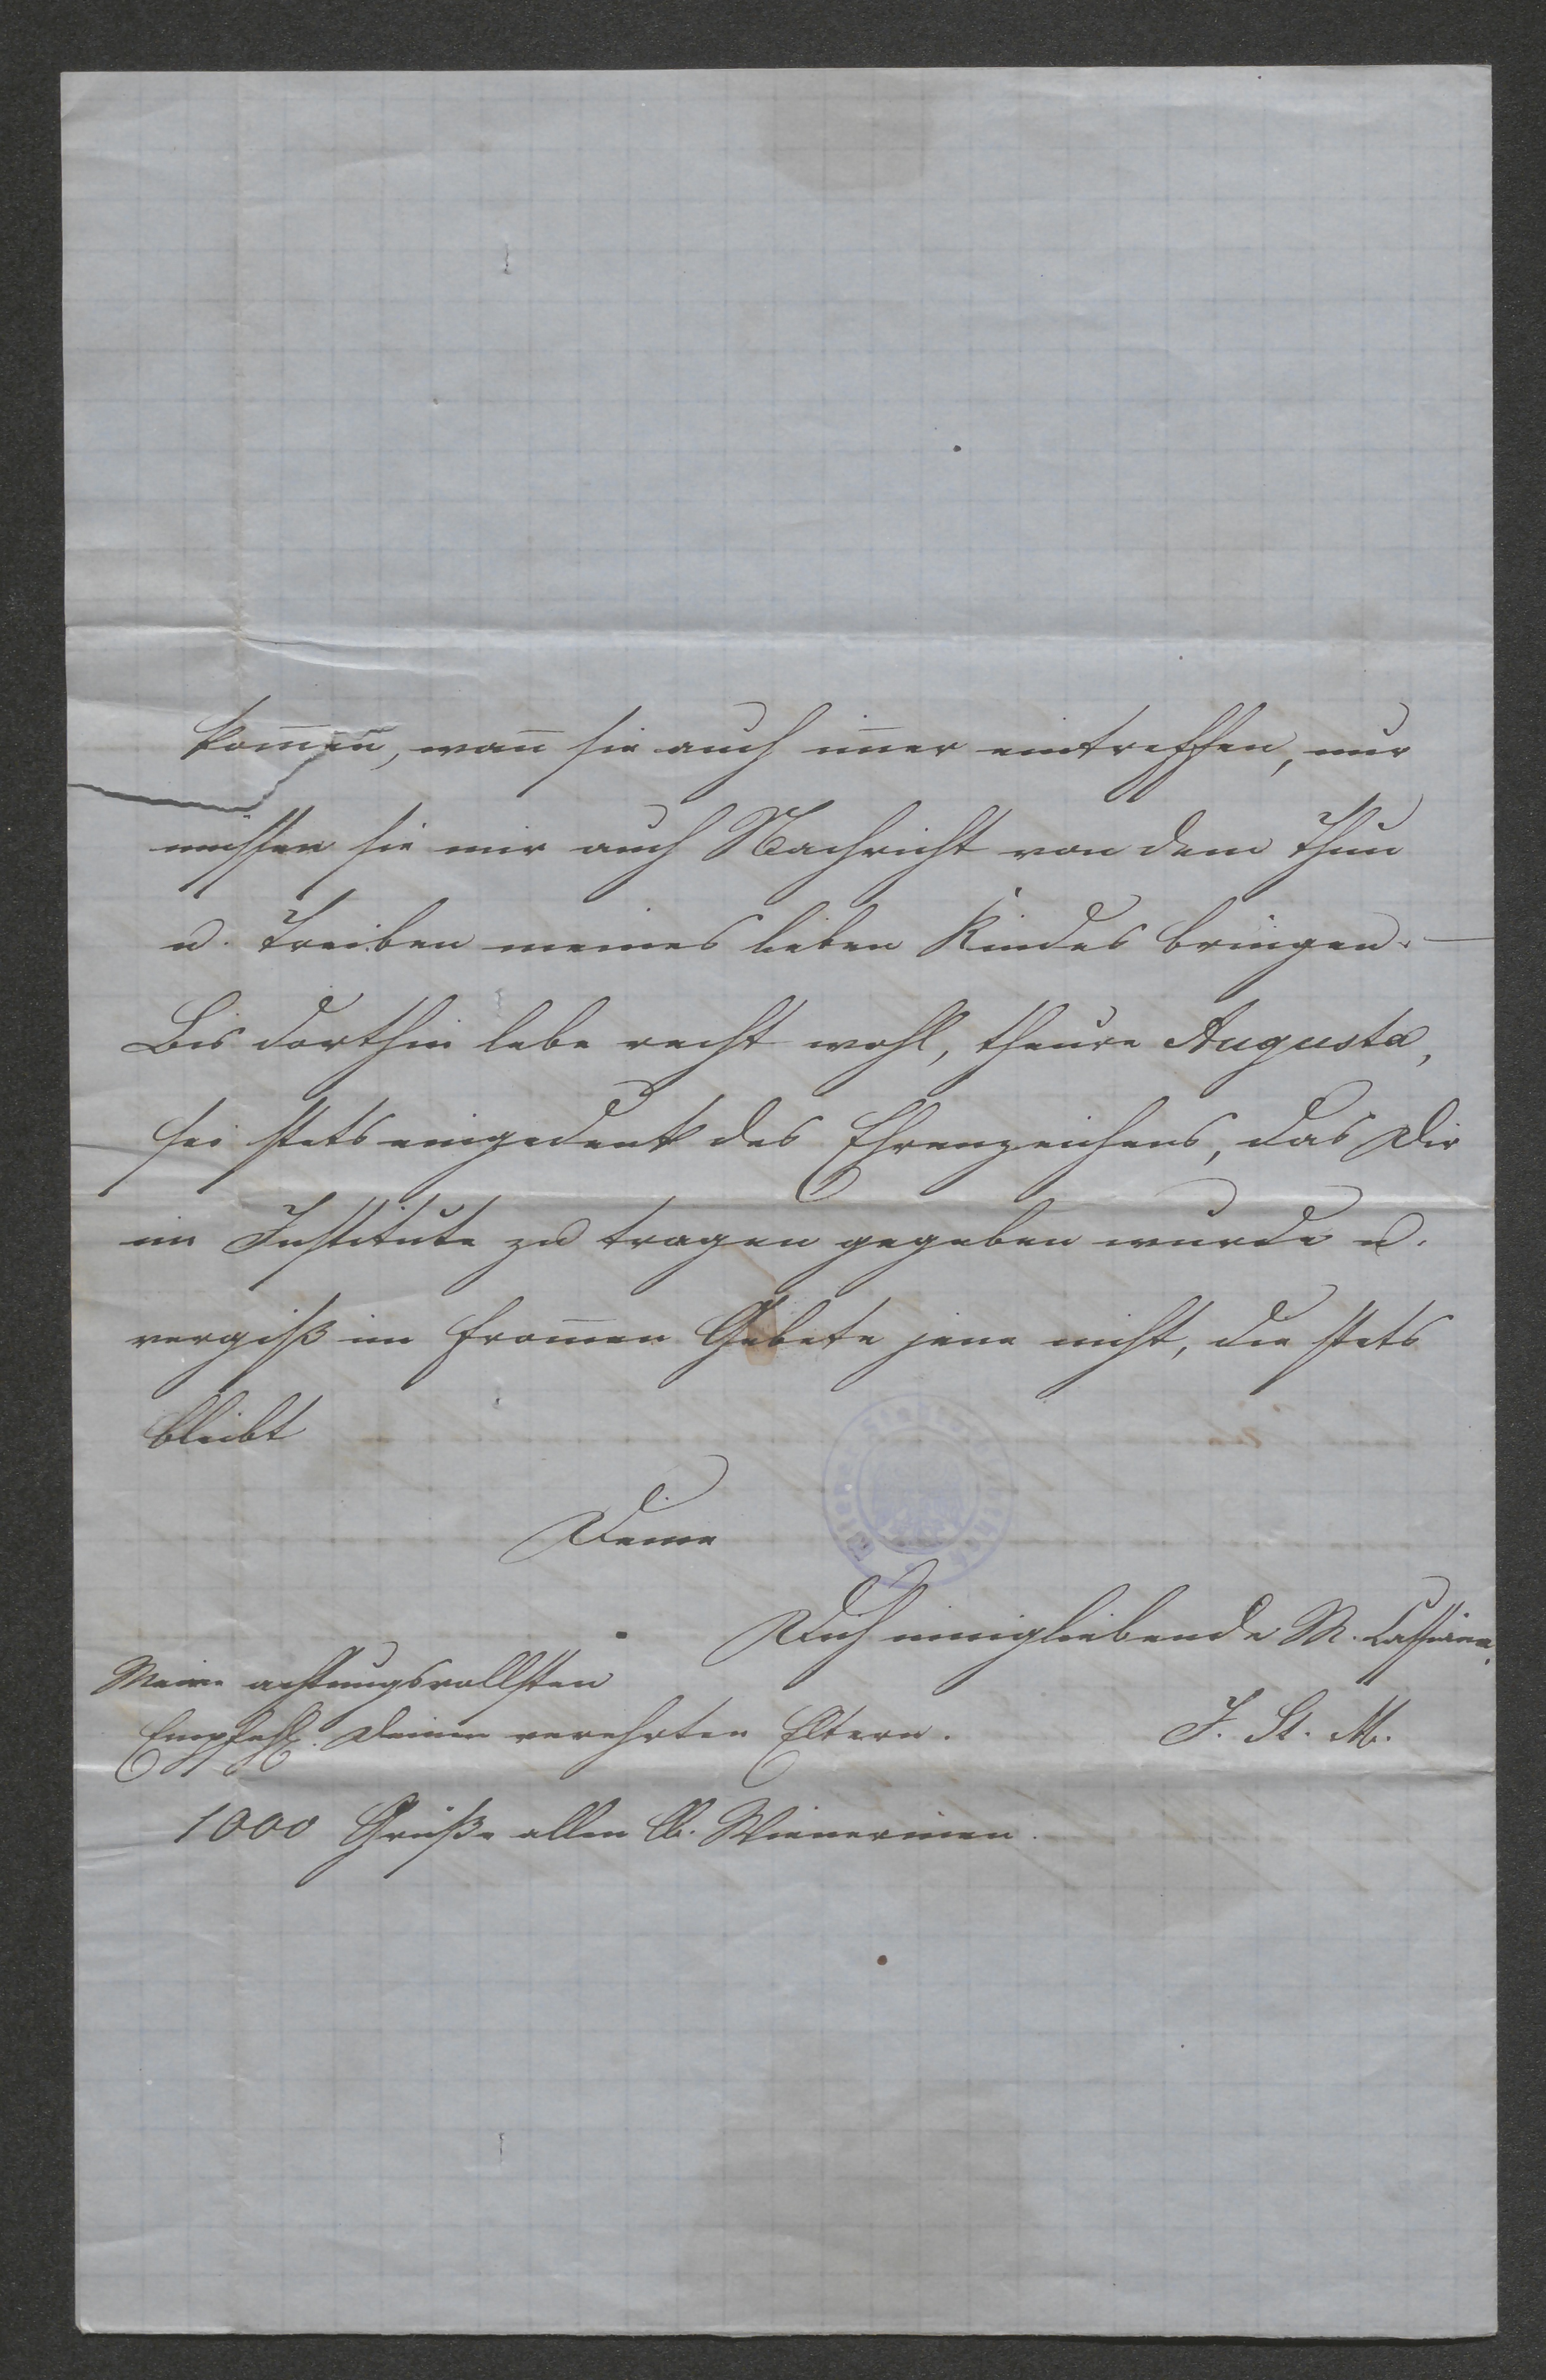 kom̅en, wan̅ sie auch im̅er eintreffen, nur
müssen sie mir auch Nachricht von dem Thun
u. Treiben meines lieben Kindes bringen. —
Bis dorthin lebe recht wohl, theure Augusta,
sei stets eingedenk des Ehrenzeichens, das Dir
im Institute zu tragen gegeben wurde u.
vergiß im from̅en Gebete jene nicht, die stets
bleibt
Deine
Dich innigliebende M. Cassiana
Meine achtungsvollsten
Empfehl. Deinen verehrten Eltern.
J. St. M.
1000 Grüße allen lb. Wienerinen.